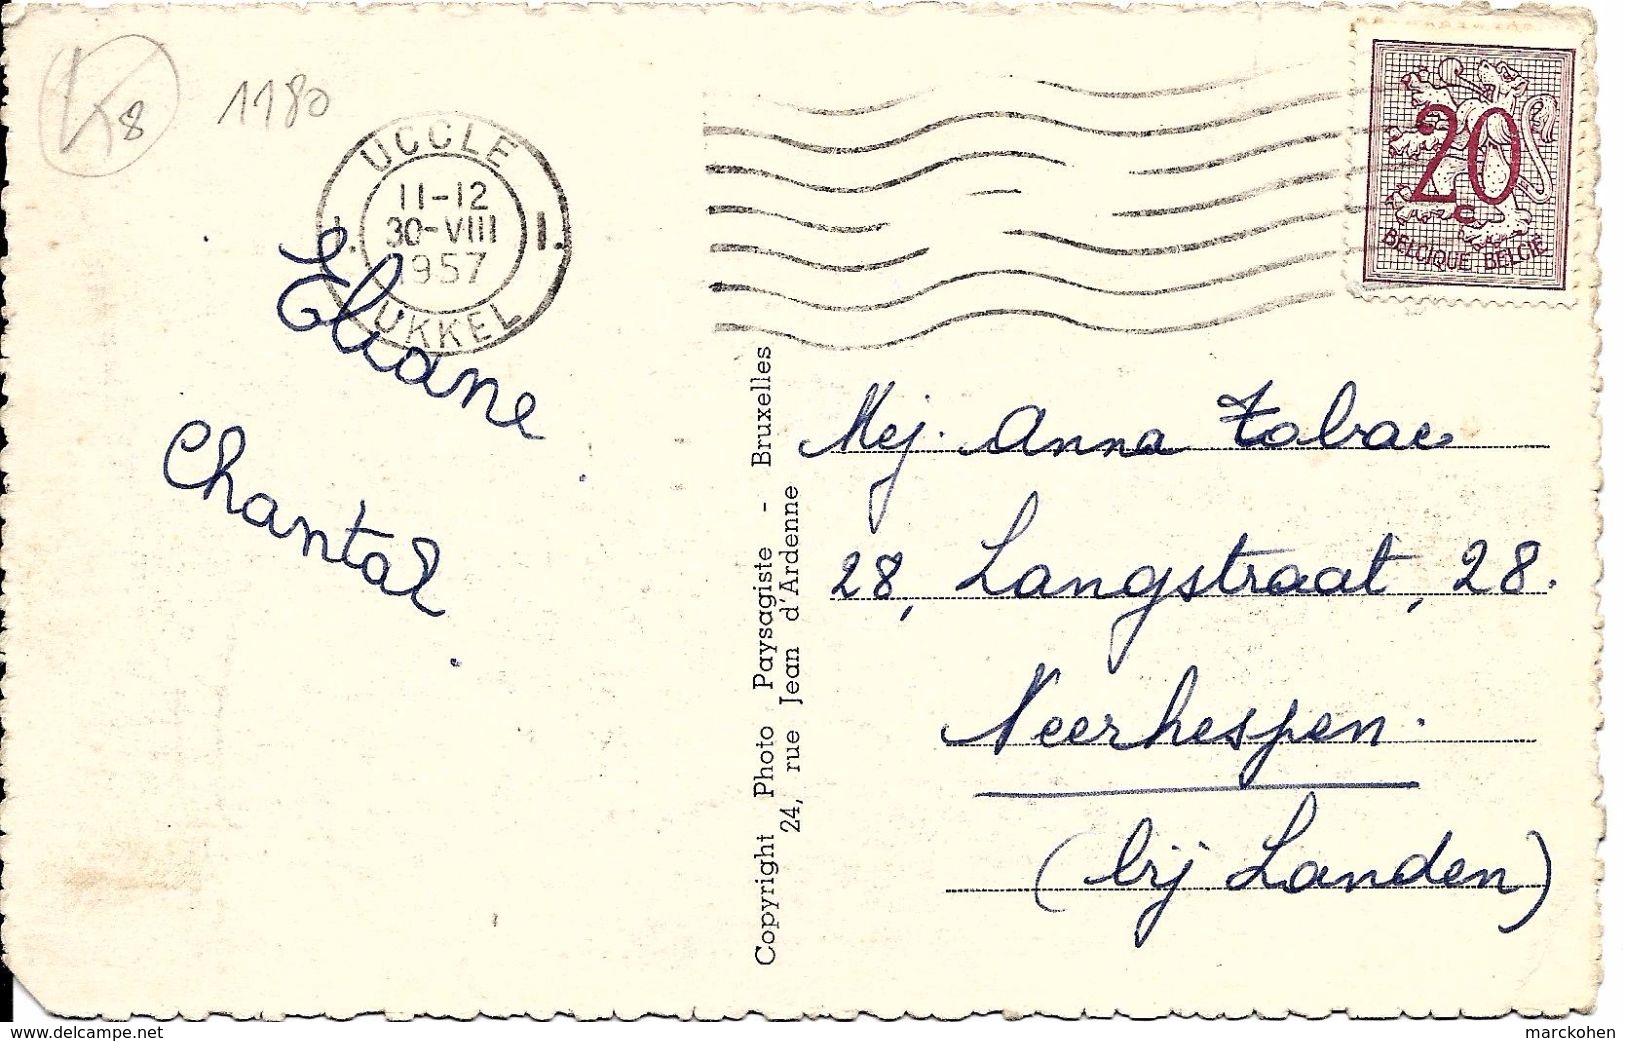 K8
1180
UCCLE
11-12
30-VIII
1957
1. 1.
UKKEL
20
c
BELGIQUE BELGIE
Eliane
Chantal.
Copyright Photo Paysagiste - Bruxelles
24, rue Jean d'Ardenne
Mej. Anna Tobac
28, Langstraat, 28.
Neerhespen.
(bij Landen)
www.delcampe.net
marckohen